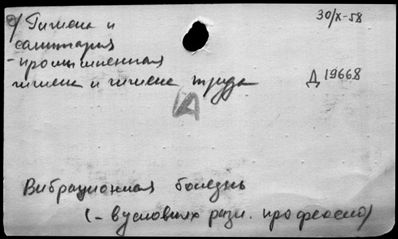 Гигиена и
санитария
- промышленная
гигиена и гигиена труда
30/X-58
Д 19668
Вибрационная болезнь
(- в условиях разн. профессий)